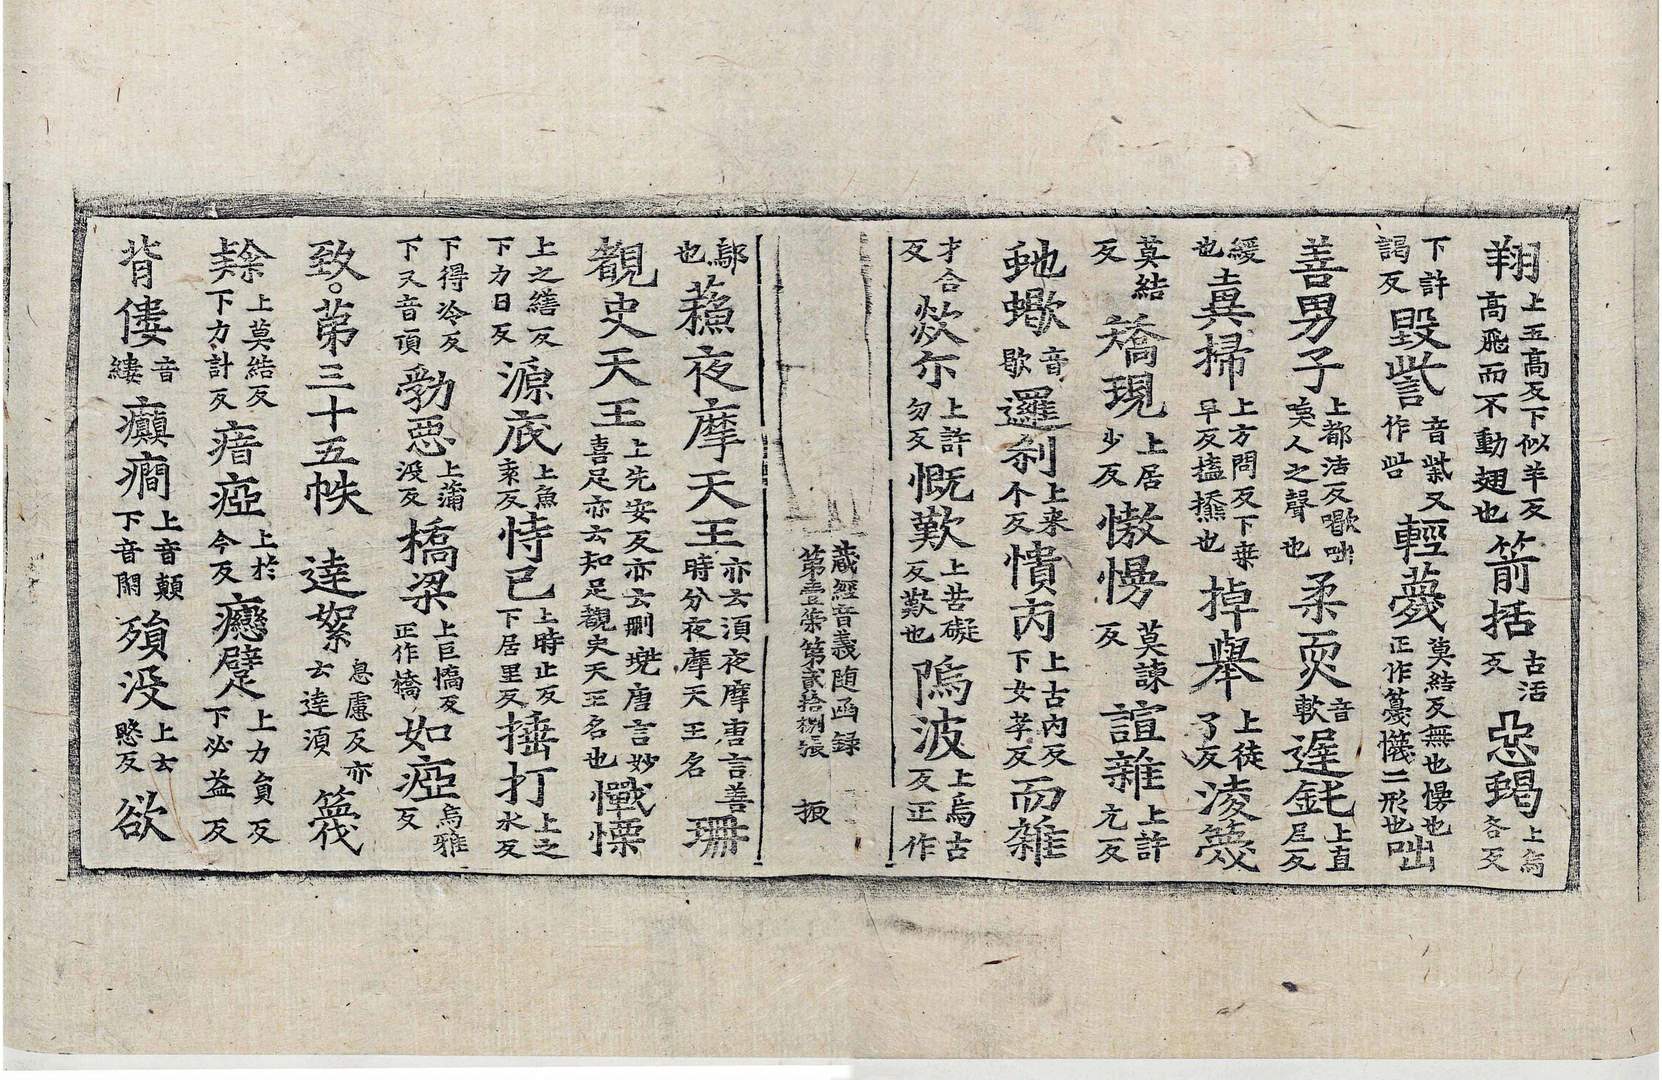 翔上五高反下似羊反高飛而不動翅也箭括古活反惡蝎上烏各反
下許謁反毀訾音紫又作呰輕薎莫結反無也慢也正作蔑懱二形也咄
善男子上都活反㗵咄㖞人之聲也柔耎音軟遅鈍上直尼反
緩也上糞掃上方問反下桒早反㨋㩉也掉舉上徒了反淩篾
莫結反矯現上居少反憿慢莫諫反諠雜上許亢反
虵蠍音歇邏剎上來个反憒丙上古內反下女孝反而雜
才合反欻尓上許勿反慨歎上苦礙反歎也隖波上烏古反正作
藏經音義随函録
第壹𠕋第貳拾捌張 振
鄔也蘓夜摩天王亦云須夜摩唐言善時分夜摩天王名珊
覩史天王上先安反亦云刪兠唐言妙喜足亦云知足覩史天王名也懺慄
上之繕反下力日反源底上魚袁反恃已上時止反下居里反捶打上之水反
下得冷反下又音頂勃惡上蒲没反橋梁上巨憍反正作橋如瘂烏雅反
致。苐三十五帙 達絮息慮反亦云達湏 篾
隸上莫結反下力計反瘖瘂上於今反癵躄上力負反下必益反
背僂音縷癲癎上音顛下音閑殞没上亐愍反欲